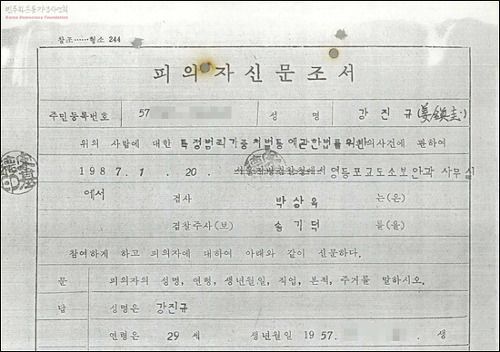 민주화운동기념사업회
Korea Democracy Foundation
참조……형소 244
피의자신문조서
주민등록번호 57 성명 강진규(姜鎭圭)
위의 사람에 대한 특정범죄가중처벌등에관한법률위반 피의사건에 관하여
1987. 1. 20. 영등포교도소보안과 사무실
에서 검사 박상옥 는(은)
검찰주사(보) 송기덕 를(을)
참여하게 하고 피의자에 대하여 아래와 같이 신문하다.
문 피의자의 성명, 연령, 생년월일, 직업, 본적, 주거를 말하시오.
답 성명은 강진규
연령은 29세 생년월일 1957. 생